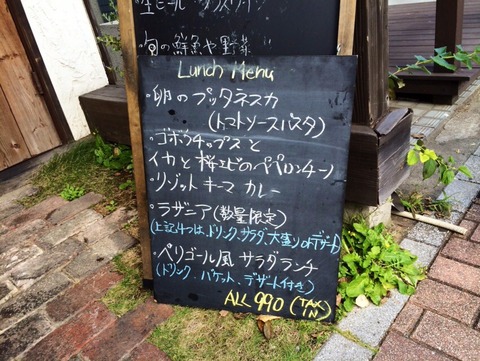 生ビール
旬の鮮魚や野菜
Lunch Menu
・卵のプッタネスカ
(トマトソースパスタ)
・ゴボウチップスと
イカと桜エビのペペロンチーノ
・リゾットキーマカレー
・ラザニア(数量限定)
(上記4つは、ドリンク、サラダ、大盛りorデザート)
・ペリゴール風サラダランチ
(ドリンク、バケット、デザート付き)
ALL 990 (TAX IN)